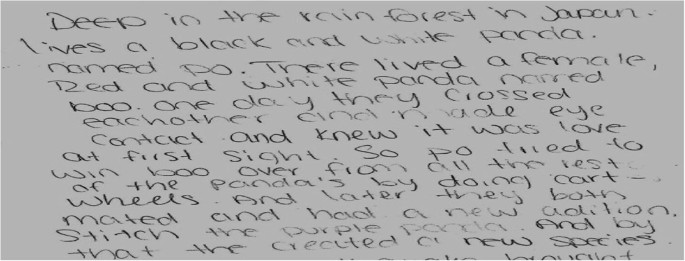 Deep in the rain forest in Japan.
lives a black and white panda.
named po. There lived a female,
Red and white panda named
boo. one day they crossed
eachother and made eye
contact and knew it was love
at first sight. So po tried to
win boo over from all the rest
of the panda's by doing cart-
wheels. And later they both
mated and had a new adition.
Stitch the purple panda. And by
that the created a new species.
brought